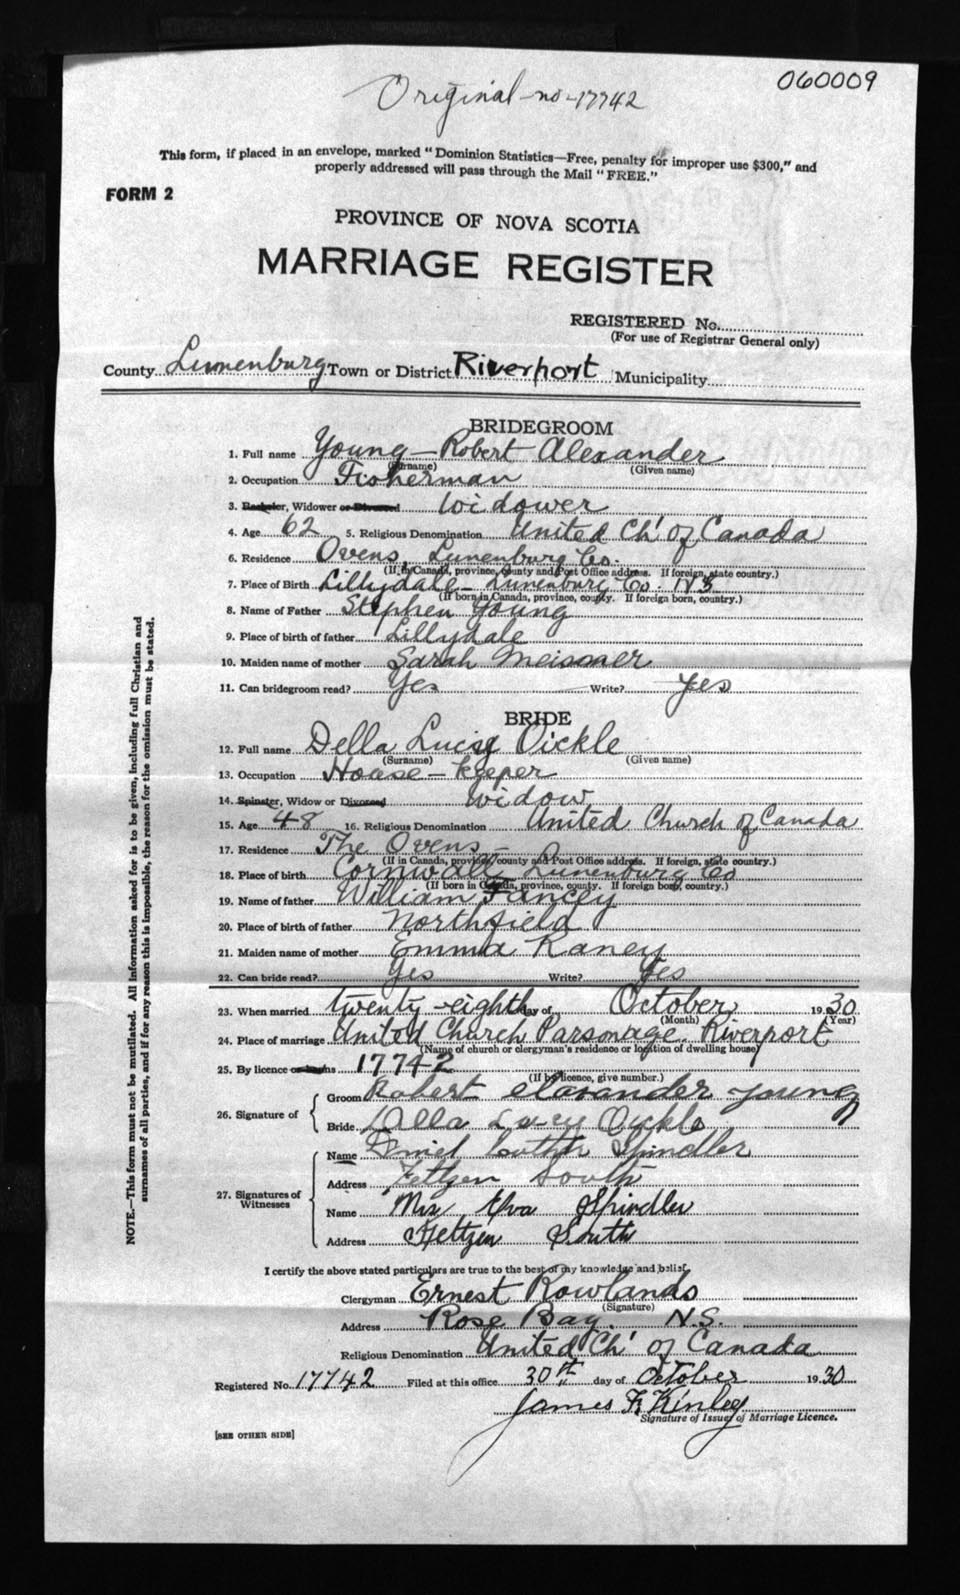 060009
Original no-17742
This form, if placed in an envelope, marked "Dominion Statistics—Free, penalty for improper use $300," and
properly addressed will pass through the Mail "FREE."
FORM 2
PROVINCE OF NOVA SCOTIA
MARRIAGE REGISTER
REGISTERED No.
(For use of Registrar General only)
County Lunenburg Town or District Riverport Municipality
BRIDEGROOM
1. Full name Young — Robert Alexander
(Surname) (Given name)
2. Occupation Fisherman
3. Bachelor, Widower or Divorced Widower
4. Age 62 5. Religious Denomination United Ch' of Canada
6. Residence Ovens, Lunenburg Co.
(If in Canada, province, county and Post Office address. If foreign, state country.)
7. Place of Birth Lillydale — Lunenburg Co. N S
(If born in Canada, province, county. If foreign born, country.)
8. Name of Father Stephen Young
9. Place of birth of father Lillydale
10. Maiden name of mother Sarah Meisner
11. Can bridegroom read? Yes Write? Yes
BRIDE
12. Full name Della Lucy Oickle
(Surname) (Given name)
13. Occupation House-keeper
14. Spinster, Widow or Divorced Widow
15. Age 48 16. Religious Denomination United Church of Canada
17. Residence The Ovens —
(If in Canada, province, county and Post Office address. If foreign, state country.)
18. Place of birth Cornwall Lunenburg Co
(If born in Canada, province, county. If foreign born, country.)
19. Name of father William Fancey
20. Place of birth of father Northfield
21. Maiden name of mother Emma Raney
22. Can bride read? Yes Write? Yes
23. When married twenty-eighth day of October 1930
(Month) (Year)
24. Place of marriage United Church Parsonage. Riverport
(Name of church or clergyman's residence or location of dwelling house)
25. By licence or banns 17742
(If by licence, give number.)
26. Signature of Groom Robert Alexander Young
Bride Della Lucy Oickle
27. Signatures of Witnesses
Name Luther Spindler
Address Feltzen South
Name Mrs Eva Spindler
Address Feltzen South
I certify the above stated particulars are true to the best of my knowledge and belief.
Clergyman Ernest Rowlands
(Signature)
Address Rose Bay. N.S.
Religious Denomination United Ch' of Canada
Registered No. 17742 Filed at this office 30th day of October 1930
James F. Kinley
Signature of Issuer of Marriage Licence.
[SEE OTHER SIDE]
NOTE.—This form must not be mutilated. All information asked for is to be given, including full Christian and
surnames of all parties, and if for any reason this is impossible, the reason for the omission must be stated.